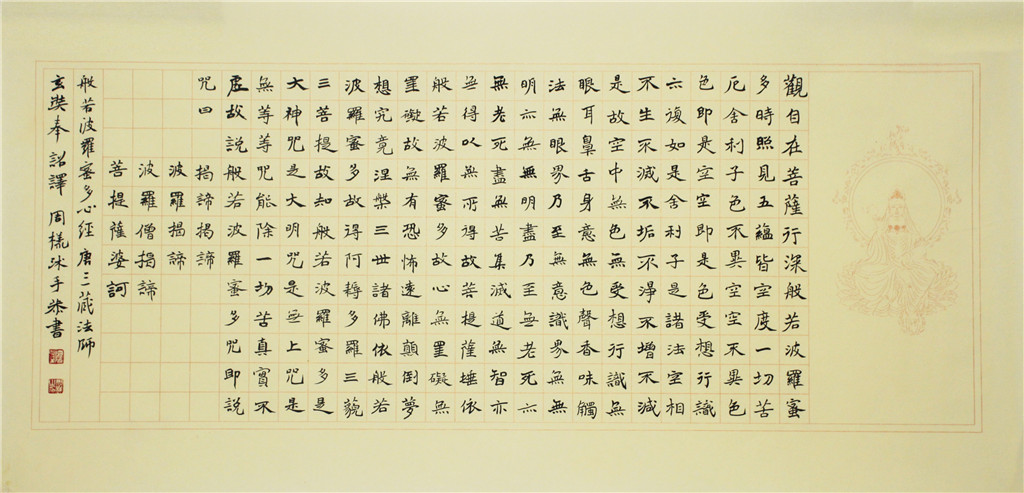 觀自在菩薩行深般若波羅蜜
多時照見五蘊皆空度一切苦
厄舍利子色不異空空不異色
色即是空空即是色受想行識
亦復如是舍利子是諸法空相
不生不滅不垢不淨不增不減
是故空中無色無受想行識無
眼耳鼻舌身意無色聲香味觸
法無眼界乃至無意識界無無
明亦無無明盡乃至無老死亦
無老死盡無苦集滅道無智亦
無得以無所得故菩提薩埵依
般若波羅蜜多故心無罣礙無
罣礙故無有恐怖遠離顛倒夢
想究竟涅槃三世諸佛依般若
波羅蜜多故得阿耨多羅三藐
三菩提故知般若波羅蜜多是
大神咒是大明咒是無上咒是
無等等咒能除一切苦真實不
虛故說般若波羅蜜多咒即說
咒曰 揭諦揭諦
波羅揭諦
波羅僧揭諦
菩提薩婆訶
般若波羅蜜多心經 唐三藏法師
玄奘奉詔譯 周 手恭書